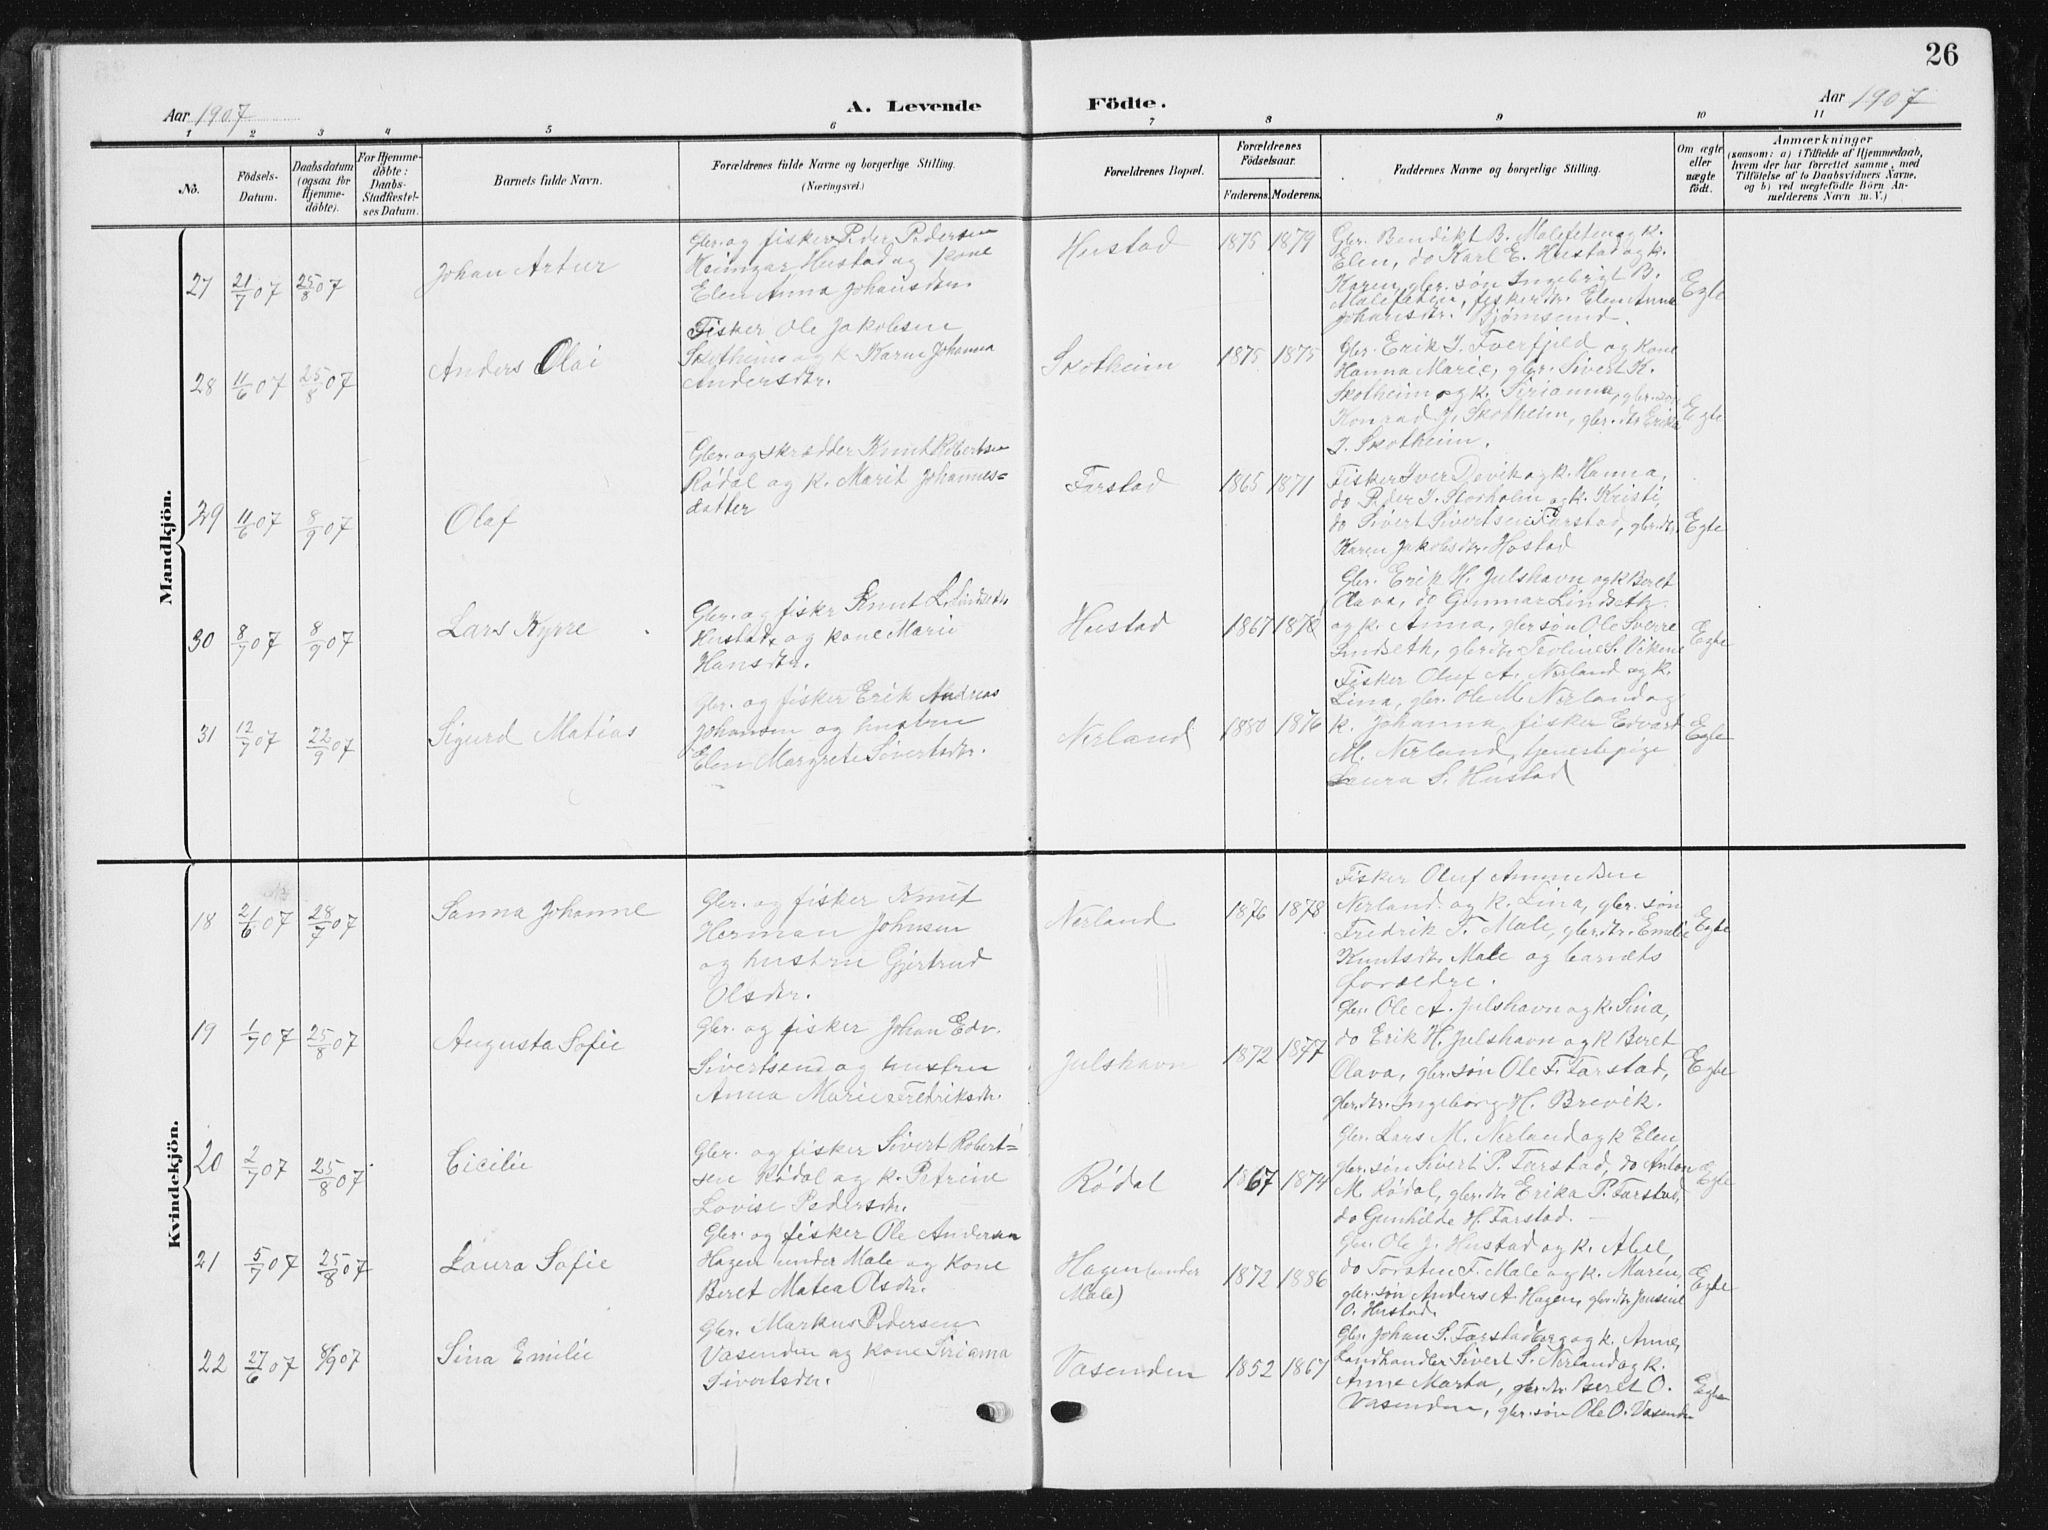 26
Aar 1907
A. Levende Födte.
Aar 1907
1 2 3 4 5 6 7 8 9 10 11
No.
Födsels-
Datum.
Daabsdatum
(ogsaa for
Hjemme-
døbte).
For Hjemme-
døbte:
Daabs-
Stadfæstel-
ses Datum.
Barnets fulde Navn.
Forældrenes fulde Navne og borgerlige Stilling.
(Næringsvei.)
Forældrenes Bopæl.
Forældrenes
Födselsaar.
Faderens. Moderens.
Faddernes Navne og borgerlige Stilling.
Om ægte
eller
uægte
født.
Anmærkninger
(saasom: a) i Tilfælde af Hjemmedaab,
hvem der har forrettet samme, med
Tilföielse af to Daabsvidners Navne,
og b) ved uægtefödte Börn An-
melderens Navn m. V.)
Mandkjön.
27 21/7 07 25/8 07 Johan Artur
Gbr. og fisker Peder Pedersen
Heimgar Hustad og kone
Elen Anna Johansdtr.
Hustad 1875 1879
Gbr. Bendikt B. Malefeten og k.
Elen, do Karl E. Hustad og k.
Karen, gbr. søn Ingebrigt B.
Malefeten, fiskerdtr. Elen Anna
Johansdtr. Bjørnsund.
Egte
28 11/6 07 25/8 07 Anders Olai
Fisker Ole Jakobsen
Skotheim og k. Karen Johanna
Andersdtr.
Skotheim 1875 1875
Gbr. Erik J. Tverfjeld og kone
Hanna Marie, gbr. Sivert K.
Skotheim og k. Sirianna, gbr. søn
Konrad J. Skotheim, gbr. dtr. Erika
J. Skotheim.
Egte
29 11/6 07 8/9 07 Olaf
Gbr. og skrædder Knut Robertsen
Rødal og k. Marit Johannes-
datter
Farstad 1865 1871
Fisker Iver Devik og k. Hanna,
do Peder J. Storholm og k. Kristi,
do Sivert Sivertsen Farstad, gbr. dtr.
Karen Jakobsdtr. Hostad
Egte
30 8/7 07 8/9 07 Lars Kyrre
Gbr. og fisker Knut L. Lindseth
Hustad og kone Marie
Hansdtr.
Hustad 1867 1870
Gbr. Erik H. Julshavn og k Beret
Olava, do Gunnar Lindseth
og k. Anna, gbr søn Ole Sverre
Lindseth, gbr. dtr. Teoline S. Vikene
Egte
31 12/7 07 22/9 07 Sigurd Matias
Gbr. og fisker Erik Andreas
Johansen og hustru
Elen Margrete Sivertsdtr.
Nerland 1880 1876
Fisker Oluf A. Nerland og k.
Lina, gbr. Ole M. Nerland og
k. Johanna, fisker Edvard
M. Nerland, tjenestepige
Laura S. Hustad
Egte
Kvindekjön.
18 21/6 07 28/7 07 Sanna Johanne
Gbr. og fisker Knut
Herman Johnsen
og hustru Gjertrud
Olsdtr.
Nerland 1876 1878
Fisker Oluf Amundsen
Nerland og k. Lina, gbr. søn
Fredrik F. Male, gbr. dtr. Emilie
Knutsdtr. Male og barnets
forældre.
Egte
19 1/7 07 25/8 07 Augusta Sofie
Gbr. og fisker Johan Edv.
Sivertsen og hustru
Anna Marie Fredriksdtr.
Julshavn 1872 1877
Gbr. Ole A. Julshavn og k. Sina,
do Erik H. Julshavn og k Beret
Olava, gbr. søn Ole F. Farstad,
gbr. dtr. Ingeborg H. Brevik.
Egte
20 2/7 07 25/8 07 Cicilie
Gbr. og fisker Sivert Robert-
sen Rødal og k. Petrine
Lovise Pedersdtr.
Rødal 1867 1874
Gbr. Lars M. Nerland og k Elen,
gbr. søn Sivert P. Farstad, do Anton
M. Rødal, gbr. dtr. Erika P. Farstad,
do Gunhilde H. Farstad.
Egte
21 5/7 07 25/8 07 Laura Sofie
Gbr. og fisker Ole Andersen
Hagen under Male og kone
Beret Matea Olsdtr.
Hagen (under
Male)
1872 1886
Gbr. Ole J. Hustad og k. Abel,
do Torsten F. Male og k. Maren,
gbr. søn Anders A Hagen, gbr. dtr Jensine
O. Hustad.
Egte
22 27/6 07 8/9 07 Sina Emilie
Gbr. Markus Pedersen
Vasenden og kone Sirianna
Sivertsdtr.
Vasenden 1852 1867
Gbr. Johan S. Farstadberg og k. Anne,
Landhandler Sivert S. Nerland og k.
Anne Marta, gbr. dtr. Beret O.
Vasenden, gbr. søn Ole O. Vasenden
Egte